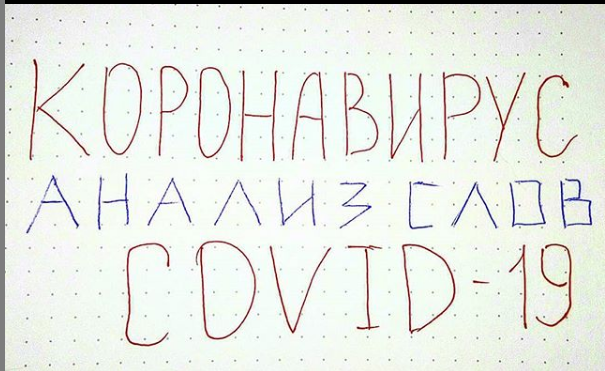 КОРОНАВИРУС
АНАЛИЗ СЛОВ
COVID-19